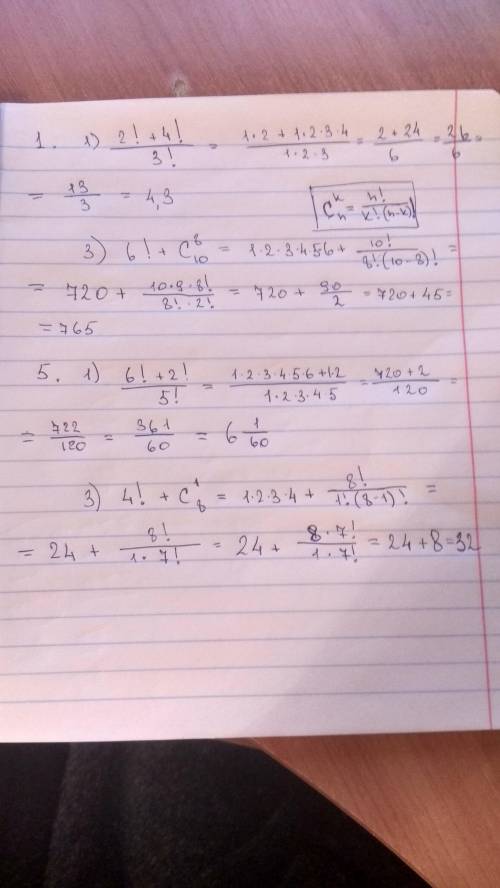 1. 1) (2! + 4!)/3! = (1·2 + 1·2·3·4)/(1·2·3) = (2 + 24)/6 = 26/6 =
= 13/3 = 4,3
C_n^k = n!/(k!·(n-k)!)
3) 6! + C_10^8 = 1·2·3·4·5·6 + 10!/(8!·(10-8)!) =
= 720 + (10·9·8!)/(8!·2!) = 720 + 90/2 = 720 + 45 =
= 765
5. 1) (6! + 2!)/5! = (1·2·3·4·5·6 + 1·2)/(1·2·3·4·5) = (720 + 2)/120 =
= 722/120 = 361/60 = 6 1/60
3) 4! + C_8^1 = 1·2·3·4 + 8!/(1!·(8-1)!) =
= 24 + 8!/(1·7!) = 24 + (8·7!)/(1·7!) = 24 + 8 = 32